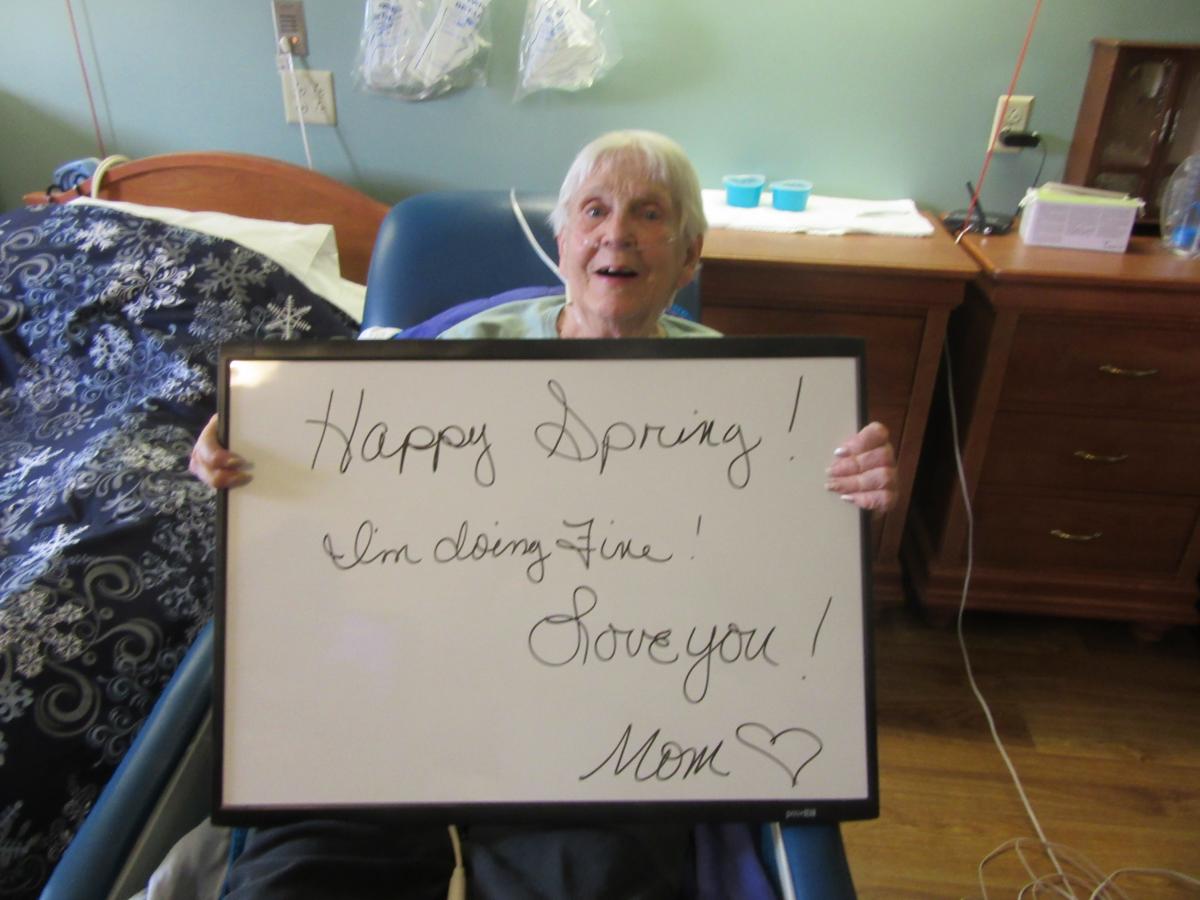 Happy Spring!
I'm doing Fine!
Love you!
Mom